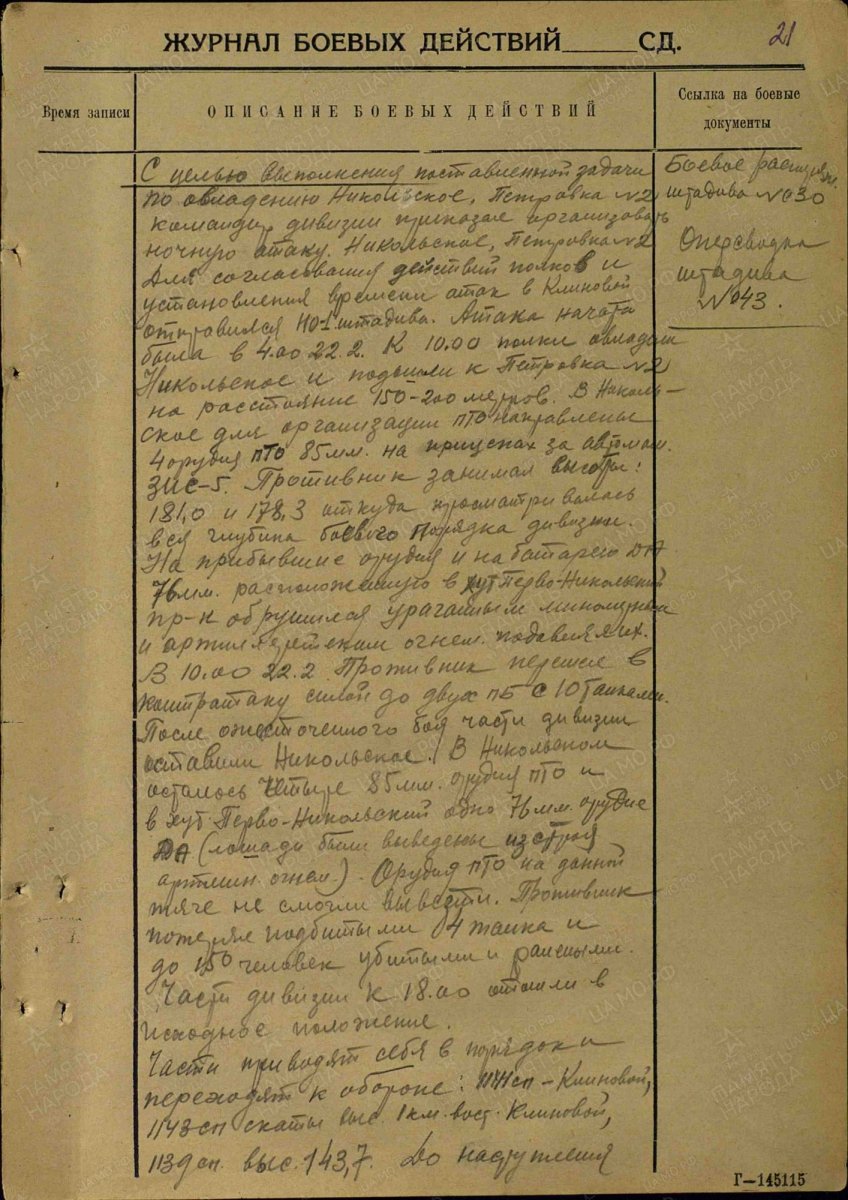 21
ЖУРНАЛ БОЕВЫХ ДЕЙСТВИЙ______СД.
Время записи
ОПИСАНИЕ БОЕВЫХ ДЕЙСТВИЙ
Ссылка на боевые
документы
С целью выполнения поставленной задачи
по овладению Никольское, Петровка №2
командир дивизии приказал организовать
ночную атаку. Никольское, Петровка №2
Для согласования действий полков и
установления времени атак в Клиновой
отправился НО-1 штадива. Атака начата
была в 4.00 22.2. К 10.00 полки овладели
Никольское и подошли к Петровка №2
на расстояние 150-200 метров. В Николь-
ское для организации ПТО направлены
4 орудия ПТО 85мм. на прицепах за автомаш.
ЗИС-5. Противник занимал высоты:
181,0 и 178,3 откуда просматривалась
вся глубина боевого порядка дивизии.
На прибывшие орудия и на батарею ДА
76мм. расположенную в хут Перво-Никольский
пр-к обрушился ураганным минометным
и артиллерийским огнем. подавил их.
В 10.00 22.2 Противник перешел в
контратаку силой до двух пб с 10 танками.
После ожесточенного боя части дивизии
оставили Никольское. В Никольском
осталось четыре 85мм. орудия ПТО и
в хут Перво-Никольский одно 76мм. орудие
ДА (лошади были выведены из строя
артмин. огнем). Орудия ПТО на данной
тяге не смогли вывезти. Противник
потерял подбитыми 4 танка и
до 150 человек убитыми и ранеными.
Части дивизии к 18.00 отошли в
исходное положение.
Части приводят себя в порядок и
переходят к обороне: 1141сп - Клиновой,
1143сп скаты выс. 1 км. вост. Клиновой,
1139сп. выс. 143,7. До наступления
Боевое распоряж.
штадива №030
Оперсводка
штадива
№043.
Г—145115